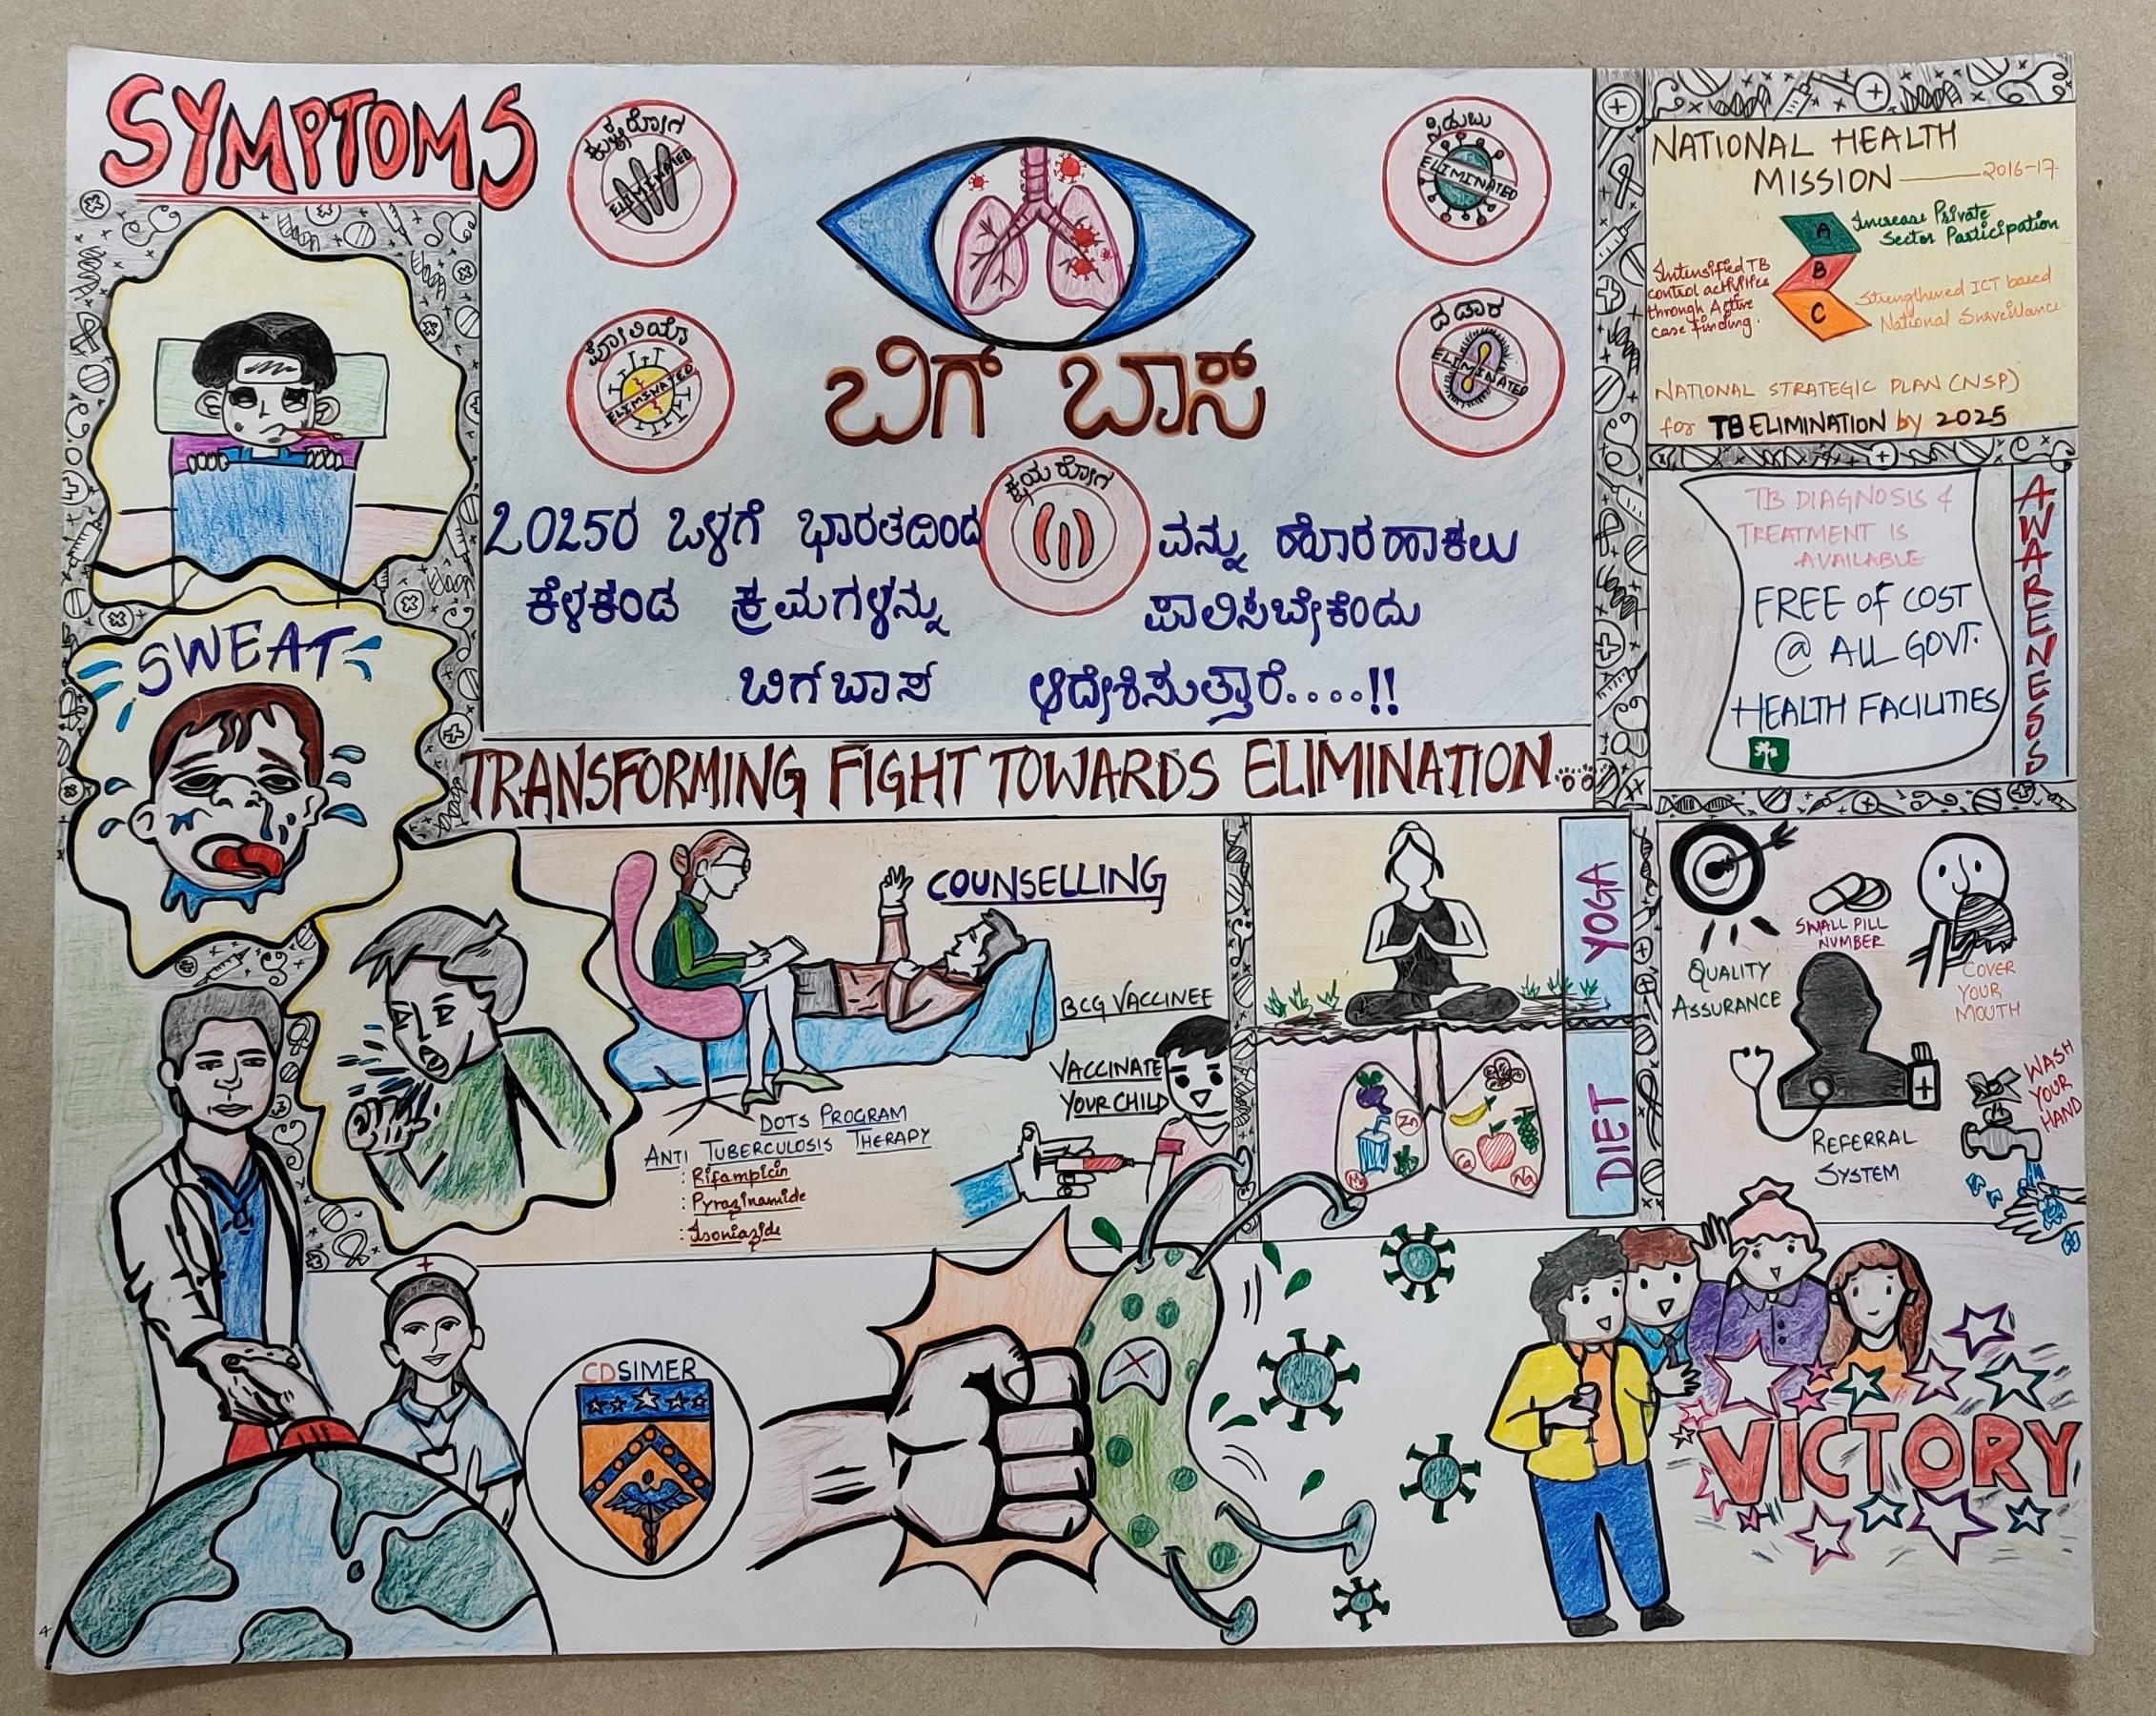 SYMPTOMS
ಕುಷ್ಠರೋಗ
ELIMINATED
ಸಿಡುಬು
ELIMINATED
ಪೋಲಿಯೊ
ELIMINATED
ದಡಾರ
ELIMINATED
ಬಿಗ್ ಬಾಸ್
ಕ್ಷಯರೋಗ
2025ರ ಒಳಗೆ ಭಾರತದಿಂದ ವನ್ನು ಹೊರಹಾಕಲು
ಕೆಳಕಂಡ ಕ್ರಮಗಳನ್ನು ಪಾಲಿಸಬೇಕೆಂದು
ಬಿಗ್ ಬಾಸ್ ಆದೇಶಿಸುತ್ತಾರೆ....!!
TRANSFORMING FIGHT TOWARDS ELIMINATION...
NATIONAL HEALTH
MISSION 2016-17
A
Increase Private
Sector Participation
B
Intensified TB
control activities
through Active
case finding.
C
Strengthened ICT based
National Surveillance
NATIONAL STRATEGIC PLAN (NSP)
for TB ELIMINATION by 2025
TB DIAGNOSIS &
TREATMENT IS
AVAILABLE
FREE OF COST
@ ALL GOVT.
HEALTH FACILITIES
AWARENESS
SWEAT
COUNSELLING
BCG VACCINEE
VACCINATE
YOUR CHILD
DOTS PROGRAM
ANTI TUBERCULOSIS THERAPY
: Rifampicin
: Pyrazinamide
: Isoniazide
YOGA
DIET
Zn
Ca
Na
QUALITY
ASSURANCE
SMALL PILL
NUMBER
COVER
YOUR
MOUTH
REFERRAL
SYSTEM
WASH
YOUR
HAND
CDSIMER
VICTORY